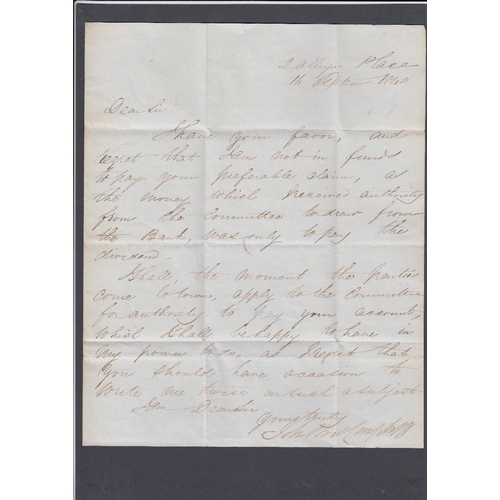 2 Albyn Place
14 Septem 1840
Dear Sir
I have your favor, and
regret that I am not in funds
to pay your preferable claim, as
the money which I received authority
from the Committee to draw from
the Bank, was only to pay the
dividend.
I shall the moment the parties
come to town, apply to the Committee
for authority to pay your account,
which I shall be happy to have in
my power to do, as I regret that
you should have occasion to
write me twice on such a subject
I am Dear Sir
yours truly
Campbell